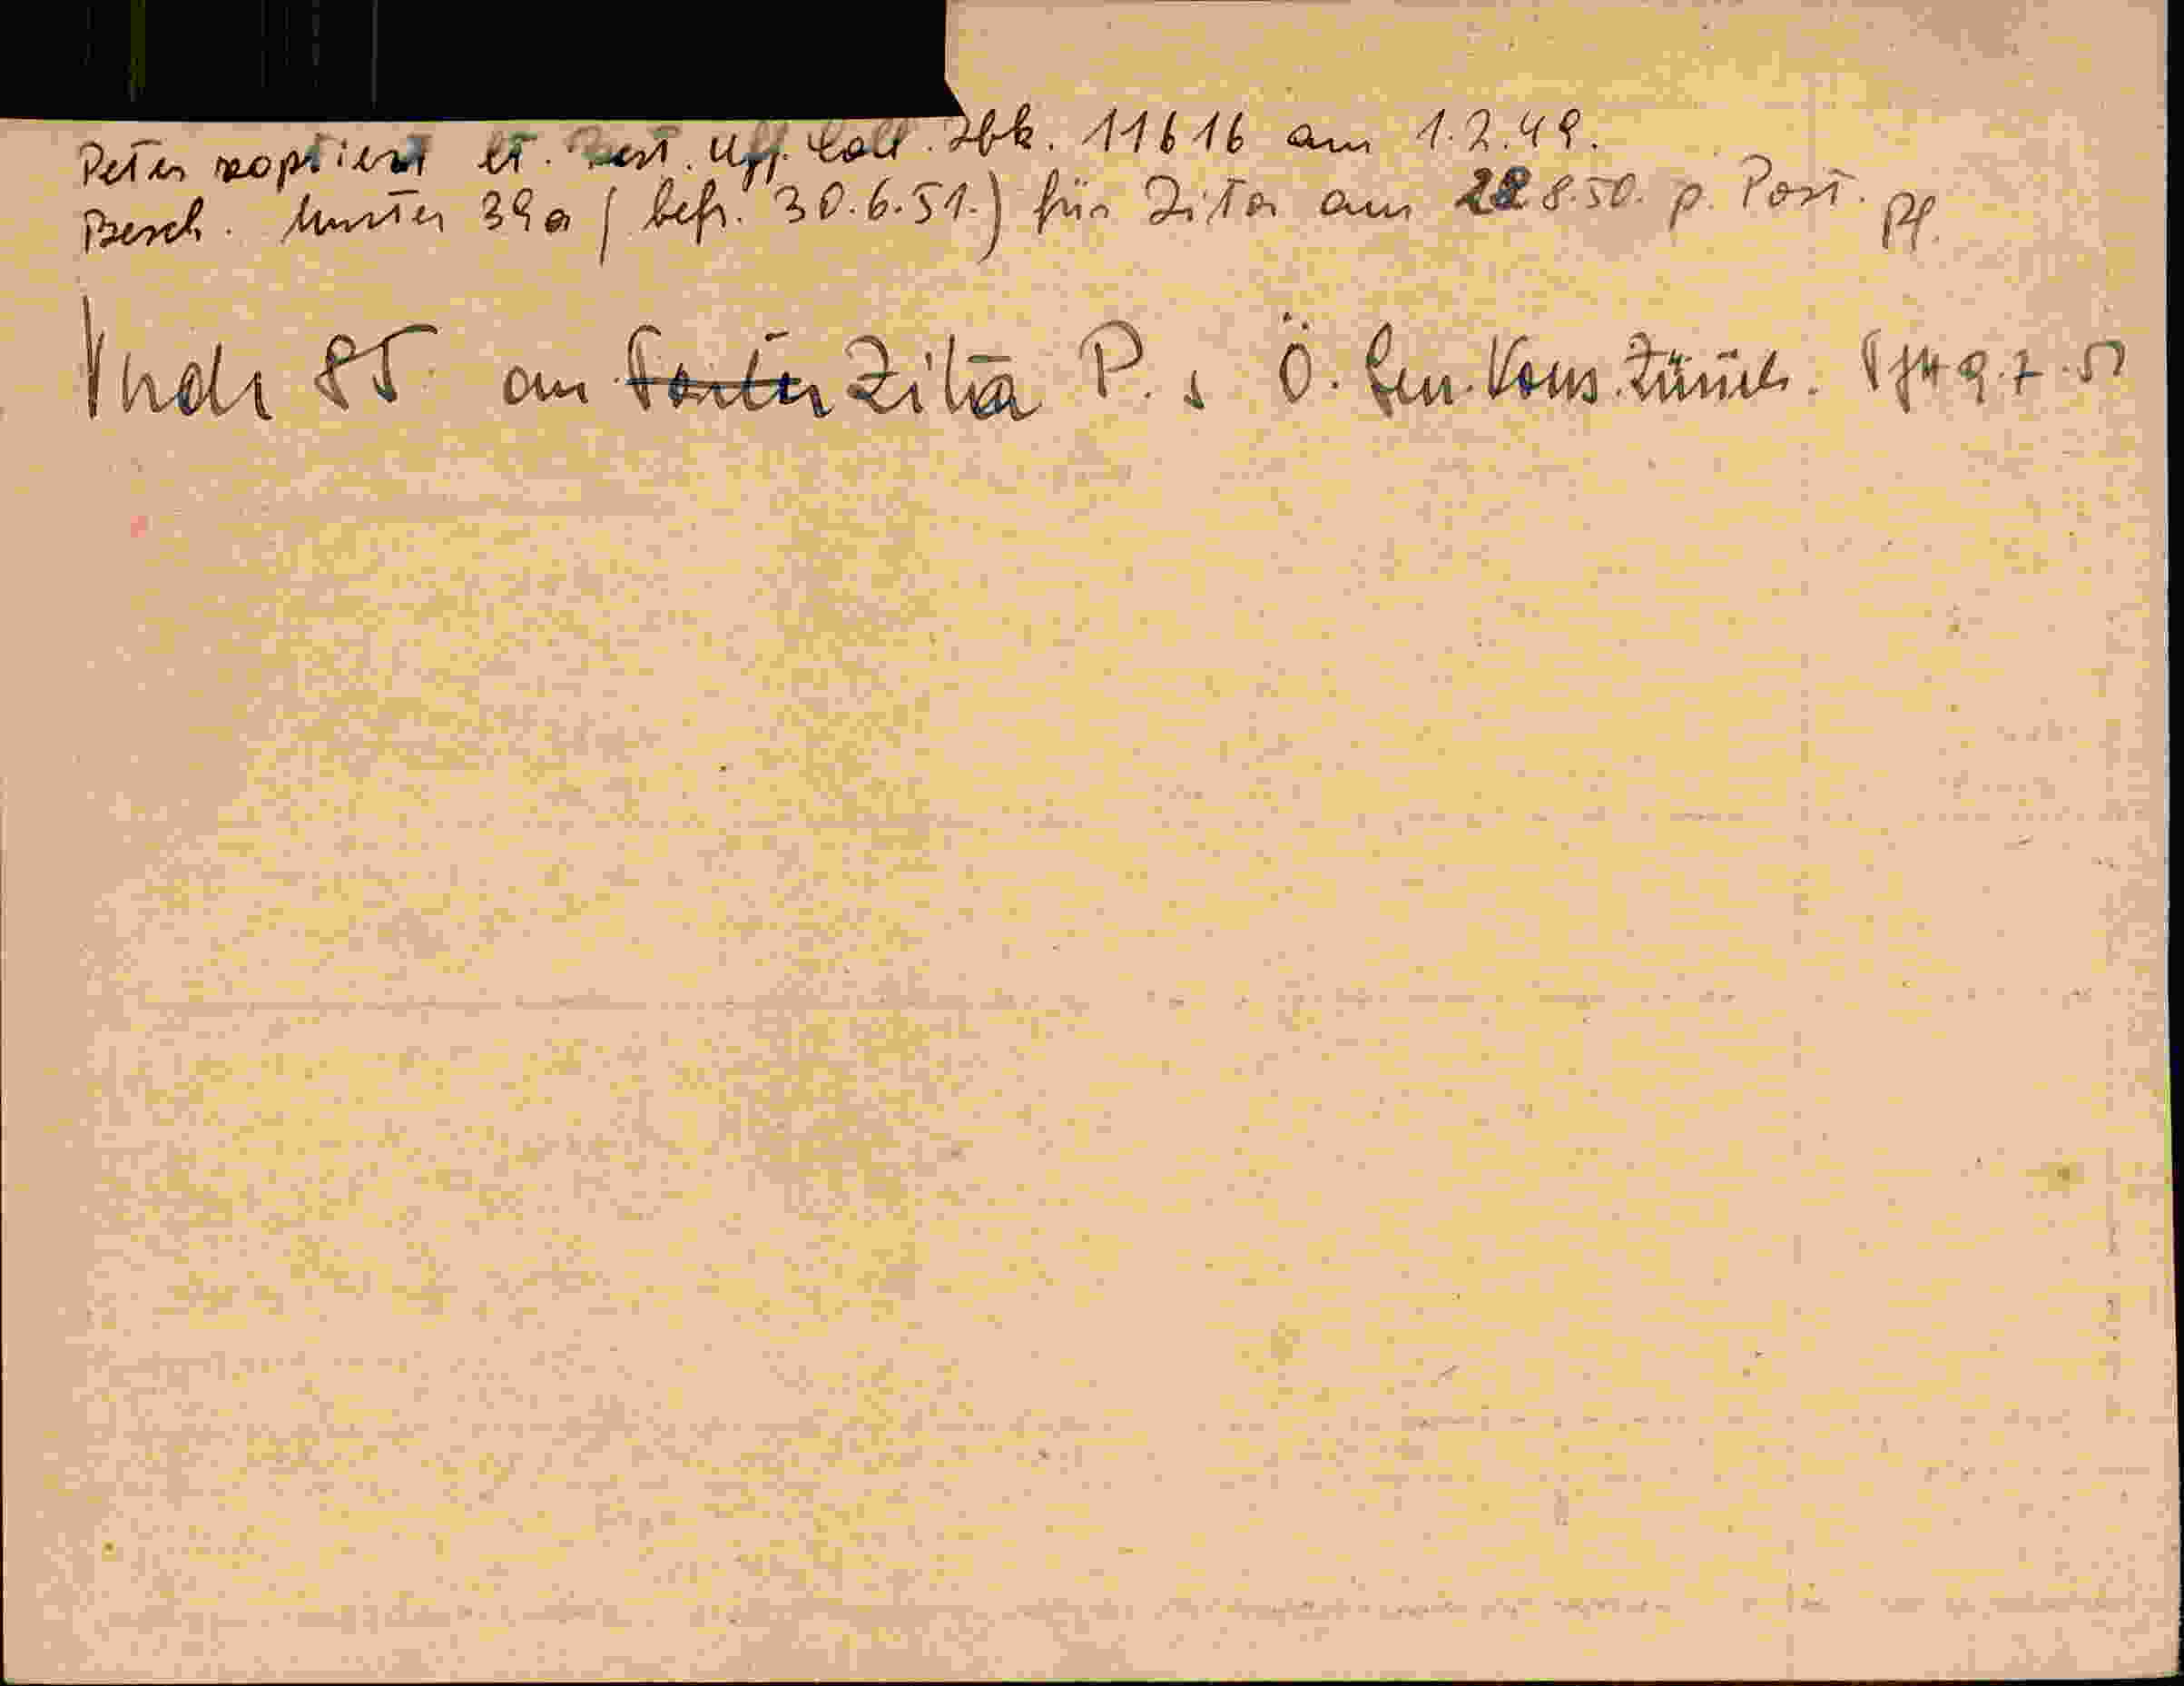 Peter roptiert lt. Best. Uff. Coll. Ibk. 11616 am 1.2.49.
Besch. Muster 39a (befr. 30.6.51.) für Zita am 28.8.50. p. Post. Pf.
85 an Zita P. Ö. Gen. Kons. Zürich. 9.7.51